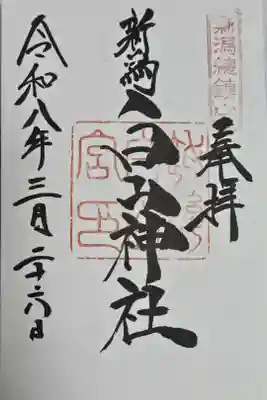 新潟總鎮守
奉拝
新潟
白山神社
令和八年三月二十六日